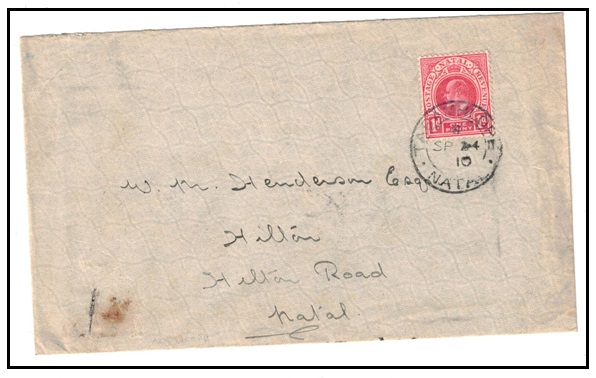 POSTAGE NATAL REVENUE
1d ONE PENNY 1d
SP 24
10
NATAL
W. M. Henderson Esq
Hilton
Hilton Road
Natal.